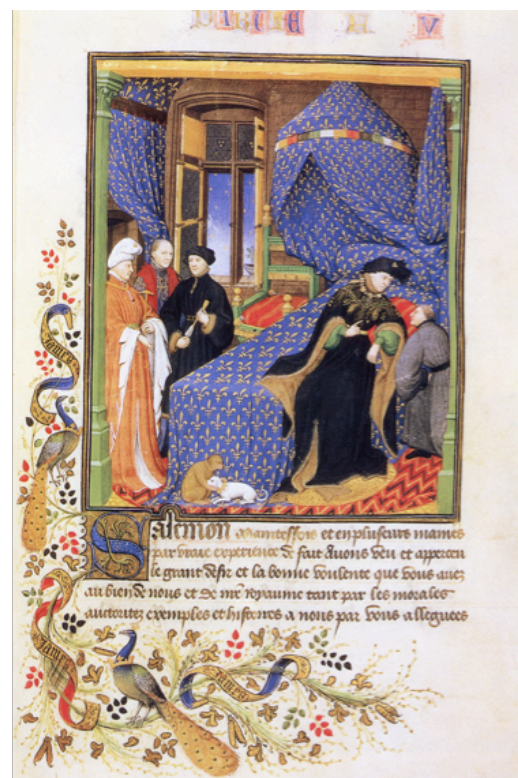 Salemon Maintesfois et en plusieurs manies
par vraie experience de fait Auons veu et apperceu
le grant desir et la bonne voulente que vous auez
au bien de nous et de nre royaume tant par les morales
auctoritez exemples et histoires a nous par vous alleguees